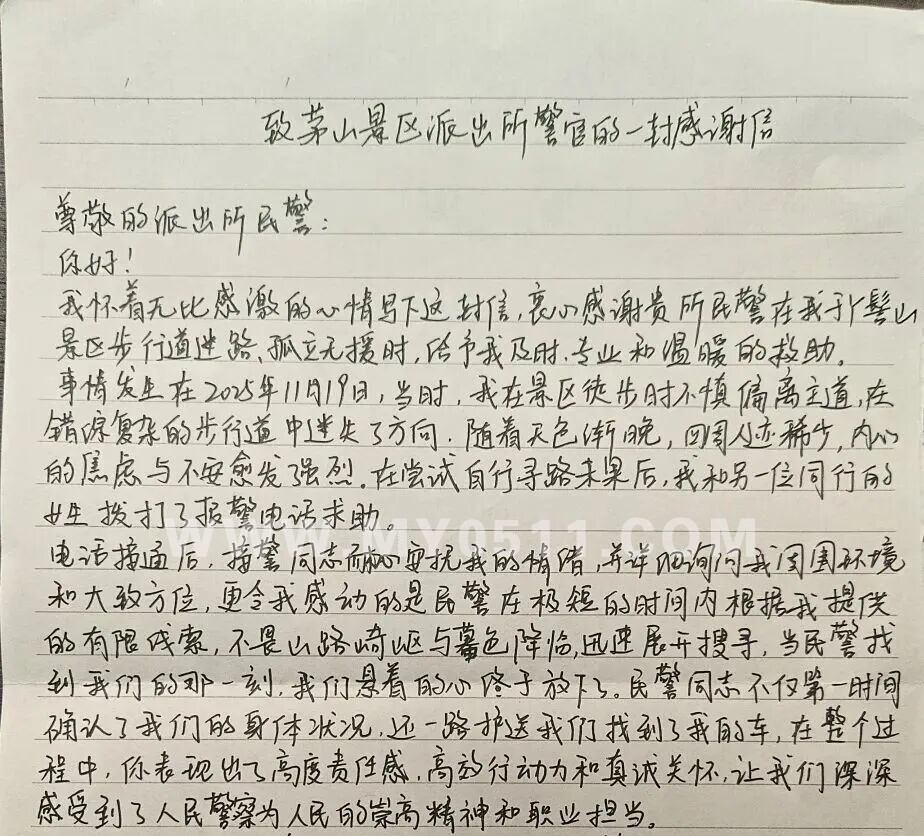 致茅山景区派出所警官的一封感谢信
尊敬的派出所民警：
你好！
我怀着无比感激的心情写下这封信，衷心感谢贵所民警在我于丫髻山
景区步行道迷路、孤立无援时，给予我及时、专业和温暖的救助。
事情发生在2025年11月19日，当时，我在景区徒步时不慎偏离主道，在
错综复杂的步行道中迷失了方向．随着天色渐晚，四周人迹稀少，内心
的焦虑与不安愈发强烈．在尝试自行寻路未果后，我和另一位同行的
女生拨打了报警电话求助。
WWW.MY0511.COM
电话接通后，接警同志耐心安抚我的情绪，并详细询问我周围环境
和大致方位，更令我感动的是民警在极短的时间内根据我提供
的有限线索，不畏山路崎岖与暮色降临，迅速展开搜寻，当民警找
到我们的那一刻，我们悬着的心终于放下了。民警同志不仅第一时间
确认了我们的身体状况，还一路护送我们找到了我的车，在整个过
程中，你表现出了高度责任感，高效行动力和真诚关怀，让我们深深
感受到了人民警察为人民的崇高精神和职业担当。